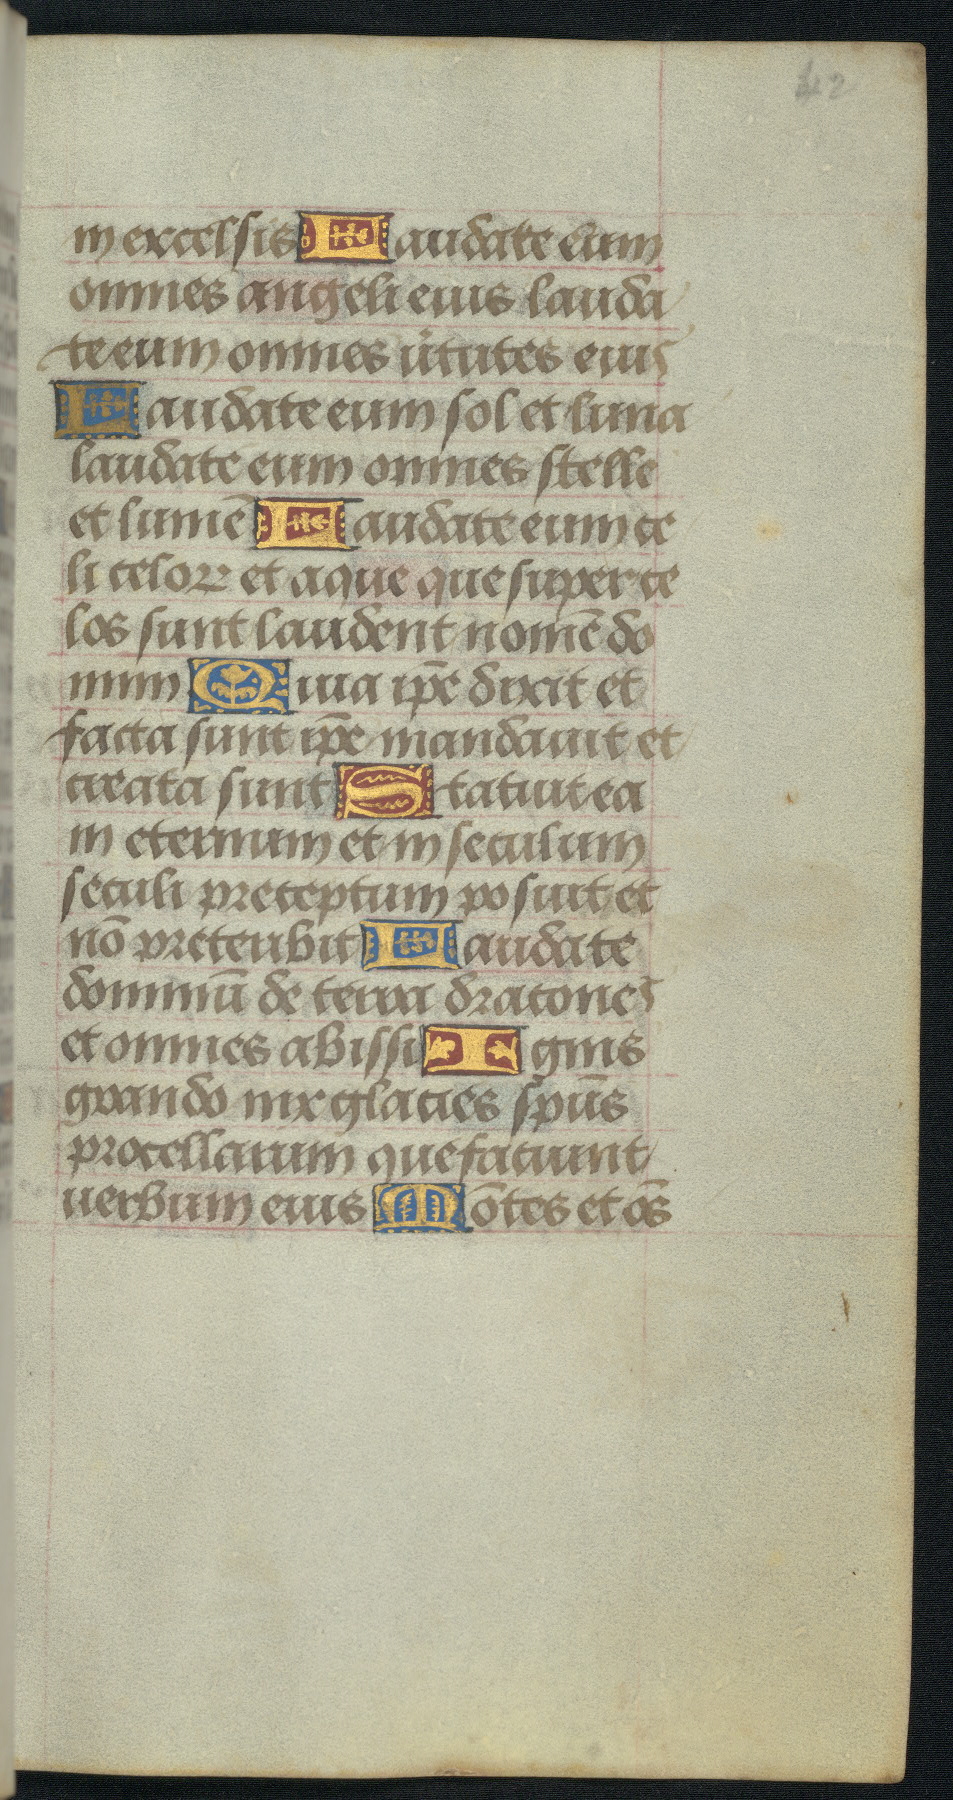 42
in excelsis Laudate eum
omnes angeli eius lauda
te eum omnes v̉tutes eius
Laudate eum sol et luna
laudate eum omnes stelle
et lumē Laudate eum ce
li celoꝝ et aque que super ce
los sunt laudent nomē do
mini Quia ip̄e dixit et
facta sunt ip̄e mandauit et
creata sunt Statuit ea
in eternum et in seculum
seculi preceptum posuit et
nō preteribit Laudate
dominū de terra dracones
et omnes abissi Ignis
grando nix glacies sp̄us
procellarum que faciunt
uerbum eius Mōtes et oēs